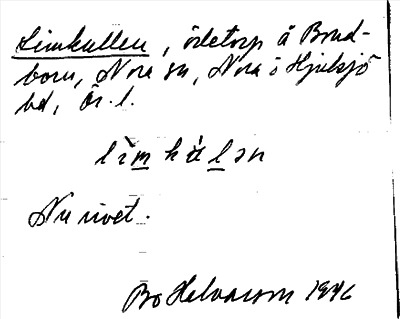 Limkullen, ödetorp å Bond-
born, Nora sn, Nora o Hjulsjö
bd, Ör. l.
lìmkùlən
Nu rivet.
Bo Helvarson 1946